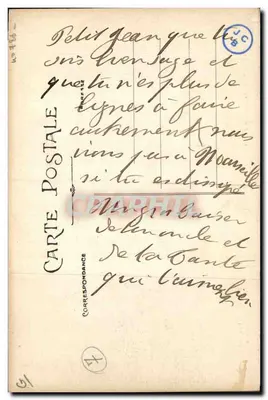 Petit Jean que tu
sois bien sage et
que tu n'es plus de
lignes à faire
autrement nous
irons pas à Marseille
si tu es dissipé
Un gros baiser
de la monde et
de ta Tante
qui t'aime bien
CARTE POSTALE
CORRESPONDANCE
J C